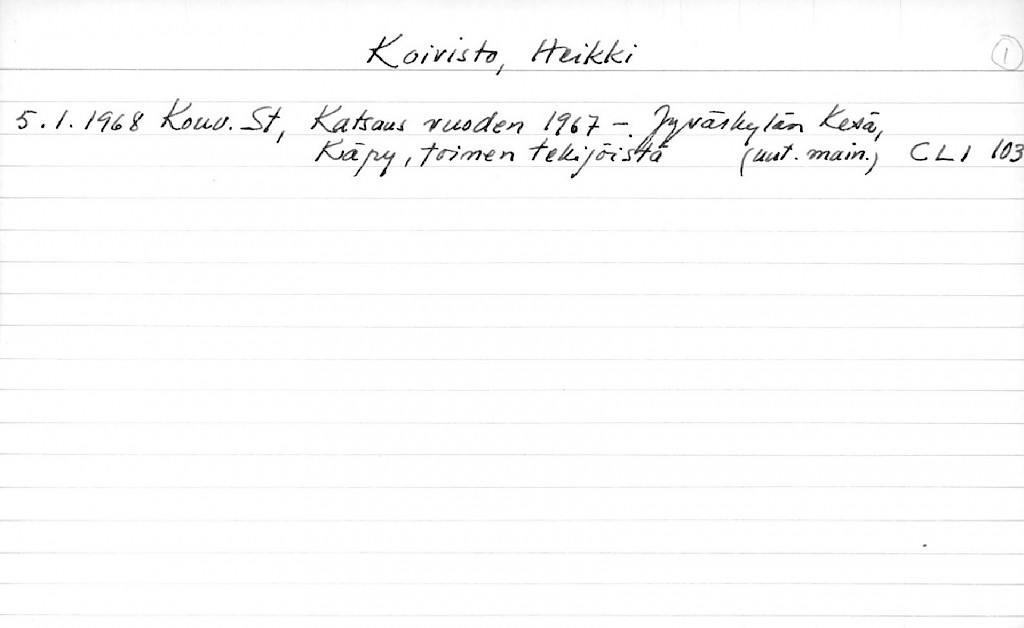 Koivisto, Heikki 1
5.1.1968 Kouv. St, Katsaus vuoden 1967 – Jyväskylän Kesä,
Käpy, toimen tekijöistä (uut. main.) CLI 103